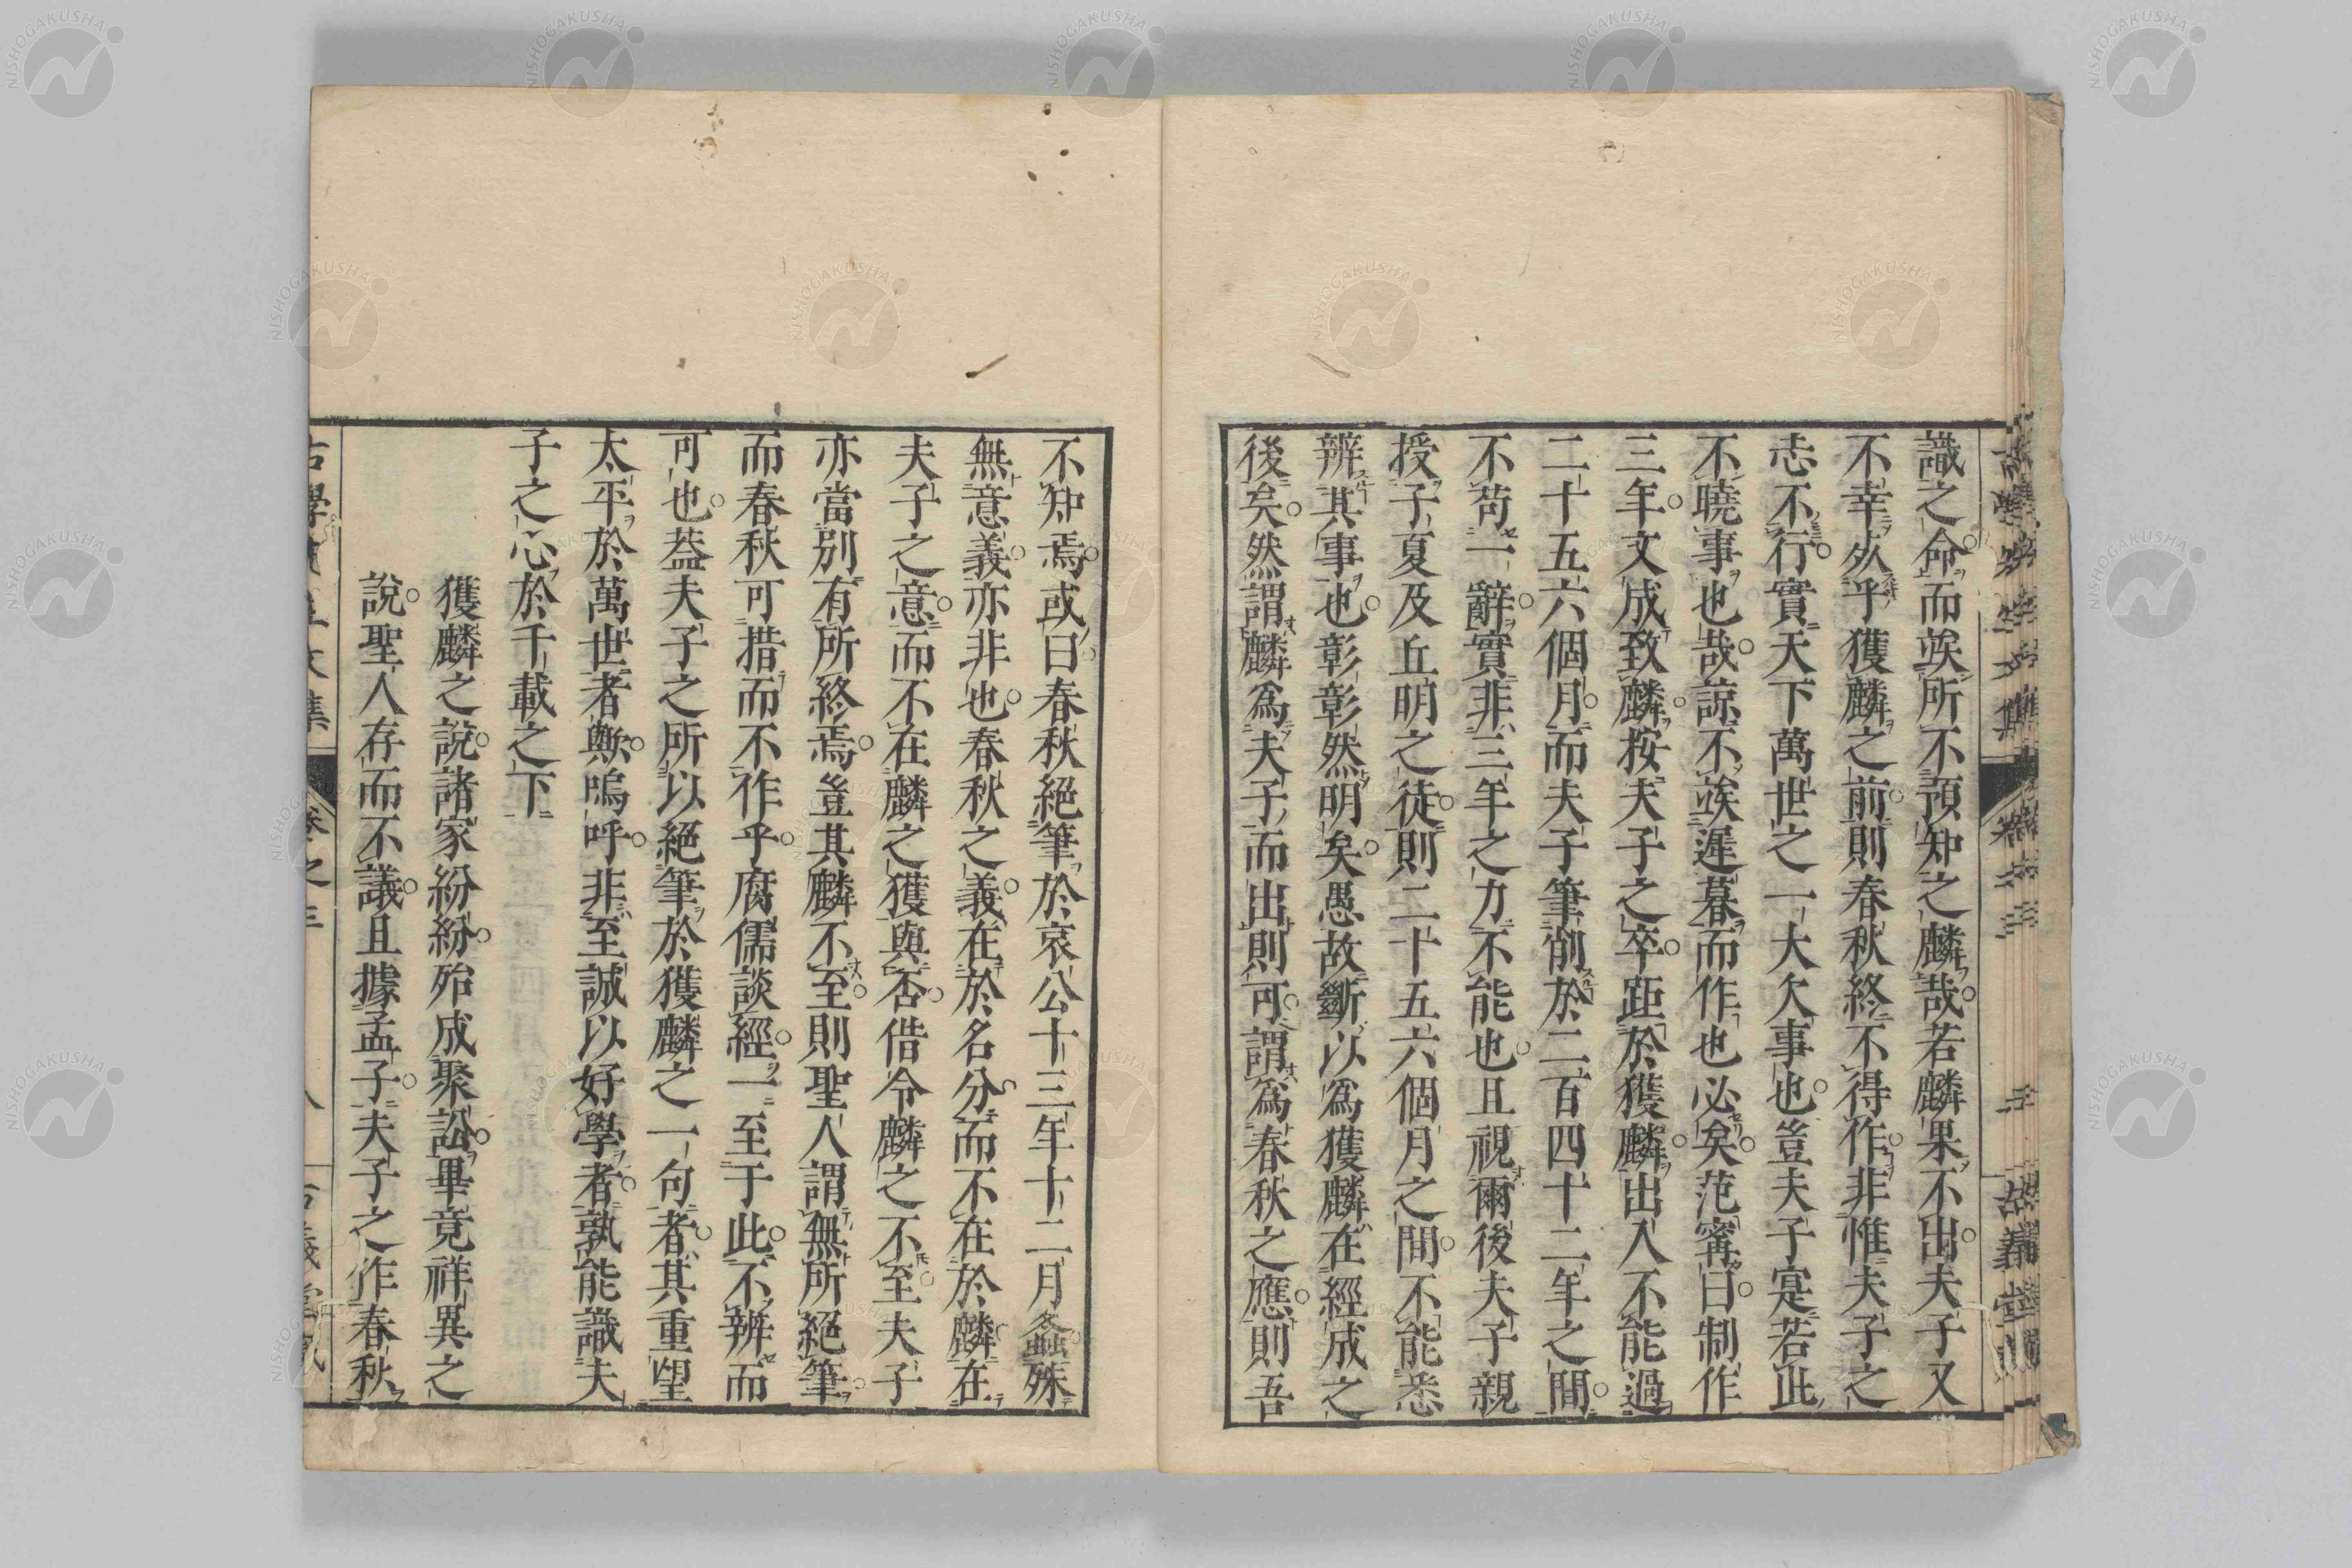 識之命而竢所不預知之麟哉若麟果不出夫子又
不幸歿乎獲麟之前則春秋終不得作非惟夫子之
志不行實天下萬世之一大欠事也豈夫子寔若此
不曉事也哉諒不竢遲暮而作也必矣范甯曰制作
三年文成致麟按夫子之卒距於獲麟出入不能過
二十五六個月而夫子筆削於二百四十二年之間
不苟一辭實非三年之力不能也且視爾後夫子親
授子夏及丘明之徒則二十五六個月之間不能悉
辨其事也彰彰然明矣愚故斷以為獲麟在經成之
後矣然謂麟為夫子而出則可謂為春秋之應則吾
不知焉或曰春秋絕筆於哀公十三年十二月螽殊
無意義亦非也春秋之義在於名分而不在於麟在
夫子之意而不在麟之獲與否借令麟之不至夫子
亦當別有所終焉豈其麟不至則聖人謂無所絕筆
而春秋可措而不作乎腐儒談經一至于此不辨而
可也葢夫子之所以絕筆於獲麟之一句者其重望
太平於萬世者歟嗚呼非至誠以好學者孰能識夫
子之心於千載之下
獲麟之說諸家紛紛殆成聚訟畢竟祥異之
說聖人存而不議且據孟子夫子之作春秋
NISHOGAKUSHA